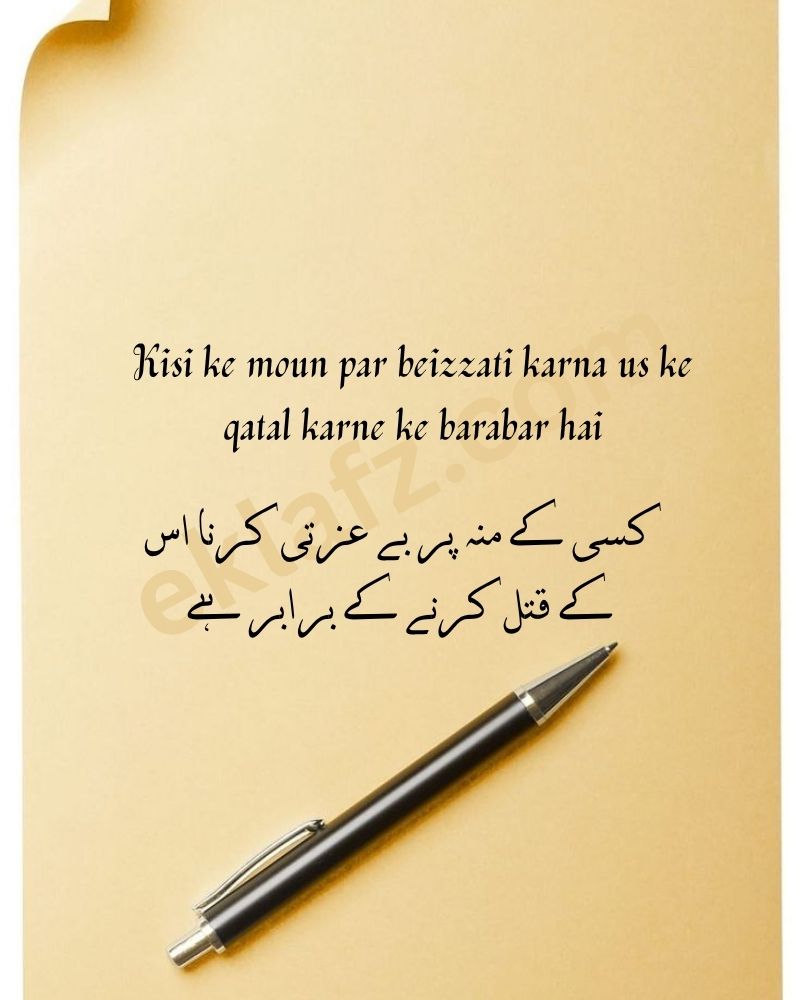 Kisi ke moun par beizzati karna us ke
qatal karne ke barabar hai
کسی کے منہ پر بے عزتی کرنا اس
کے قتل کرنے کے برابر ہے
ektafz.com